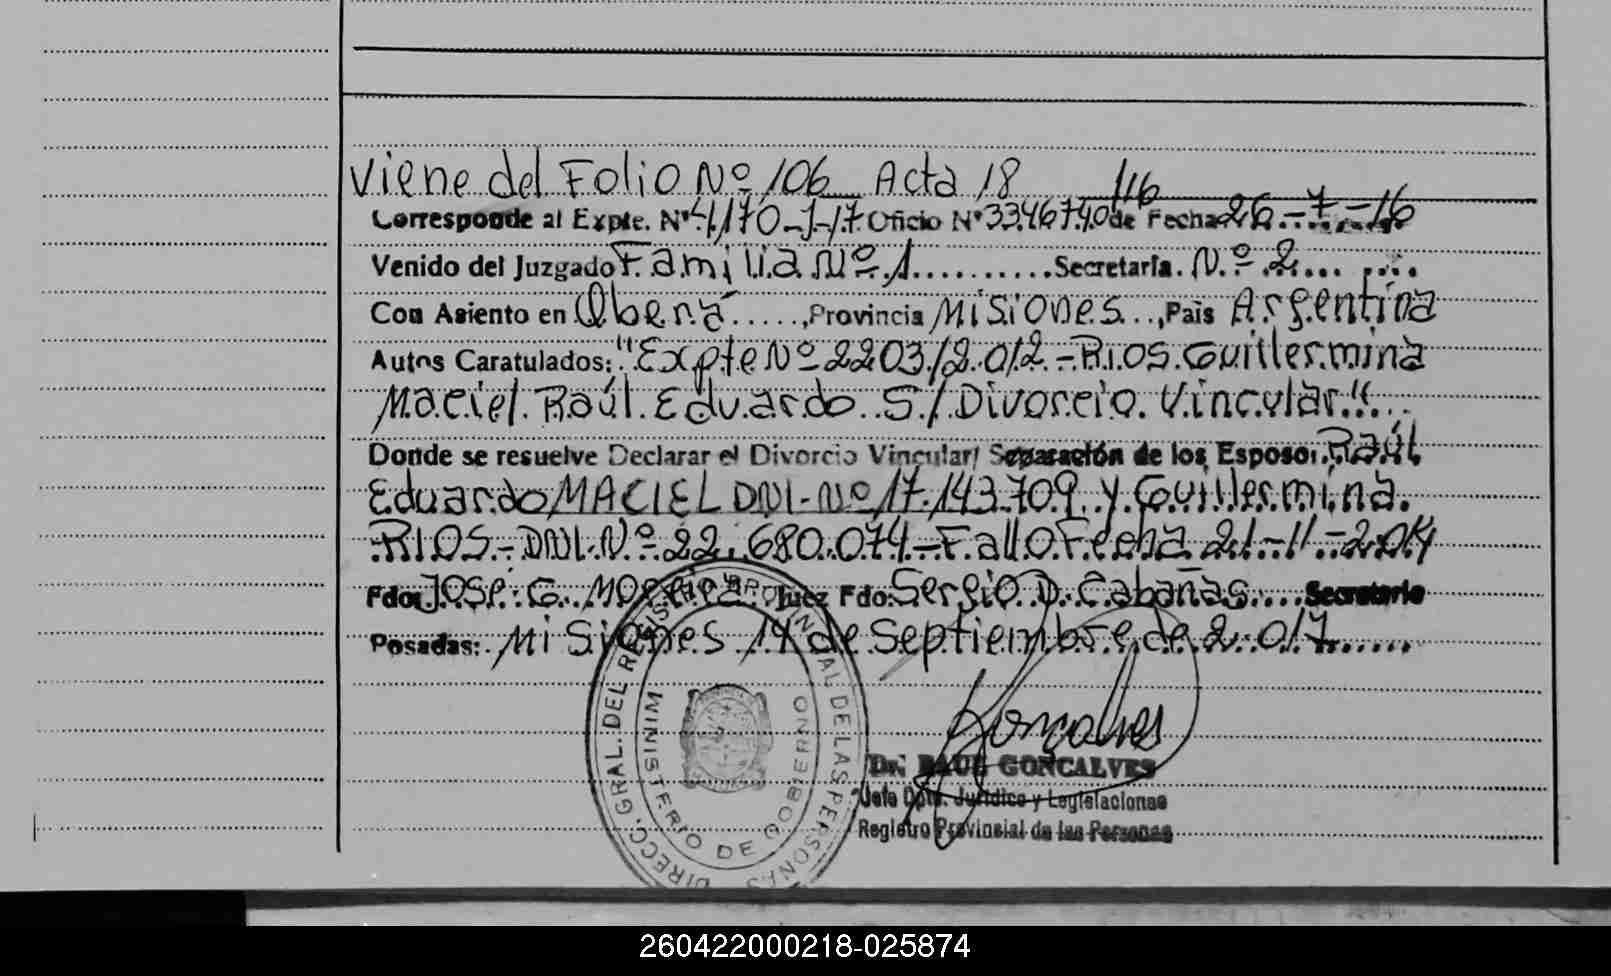 Viene del Folio Nº 106 Acta 18
116
Corresponde al Expte. Nº 4170-J-17 Oficio Nº 3346740 de Fecha 26-7-16
Venido del Juzgado Familia Nº 1 .......... Secretaria. Nº 2 ........
Con Asiento en Oberá ....., Provincia Misiones .., País Argentina
Autos Caratulados: "Expte Nº 2203/2012 - Rios Guillermina
Maciel Raúl Eduardo S/ Divorcio Vincular" ..
Donde se resuelve Declarar el Divorcio Vincular/ Separación de los Esposos Raúl
Eduardo MACIEL DNI-Nº 17.143.709 y Guillermina
RIOS - DNI Nº 22.680.074 - Fallo Fecha 21-11-2014
Fdo: Jose G. Moreira Juez Fdo: Sergio D. Cabañas .... Secretario
Posadas: Misiones 14 de Septiembre de 2.017 ......
Goncalves
Dr. RAUL GONCALVES
Jefe Dpto. Jurídico y Legislaciones
Registro Provincial de las Personas
DIRECC. GRAL. DEL REGISTRO PROVINCIAL DE LAS PERSONAS
MINISTERIO DE GOBIERNO
260422000218-025874